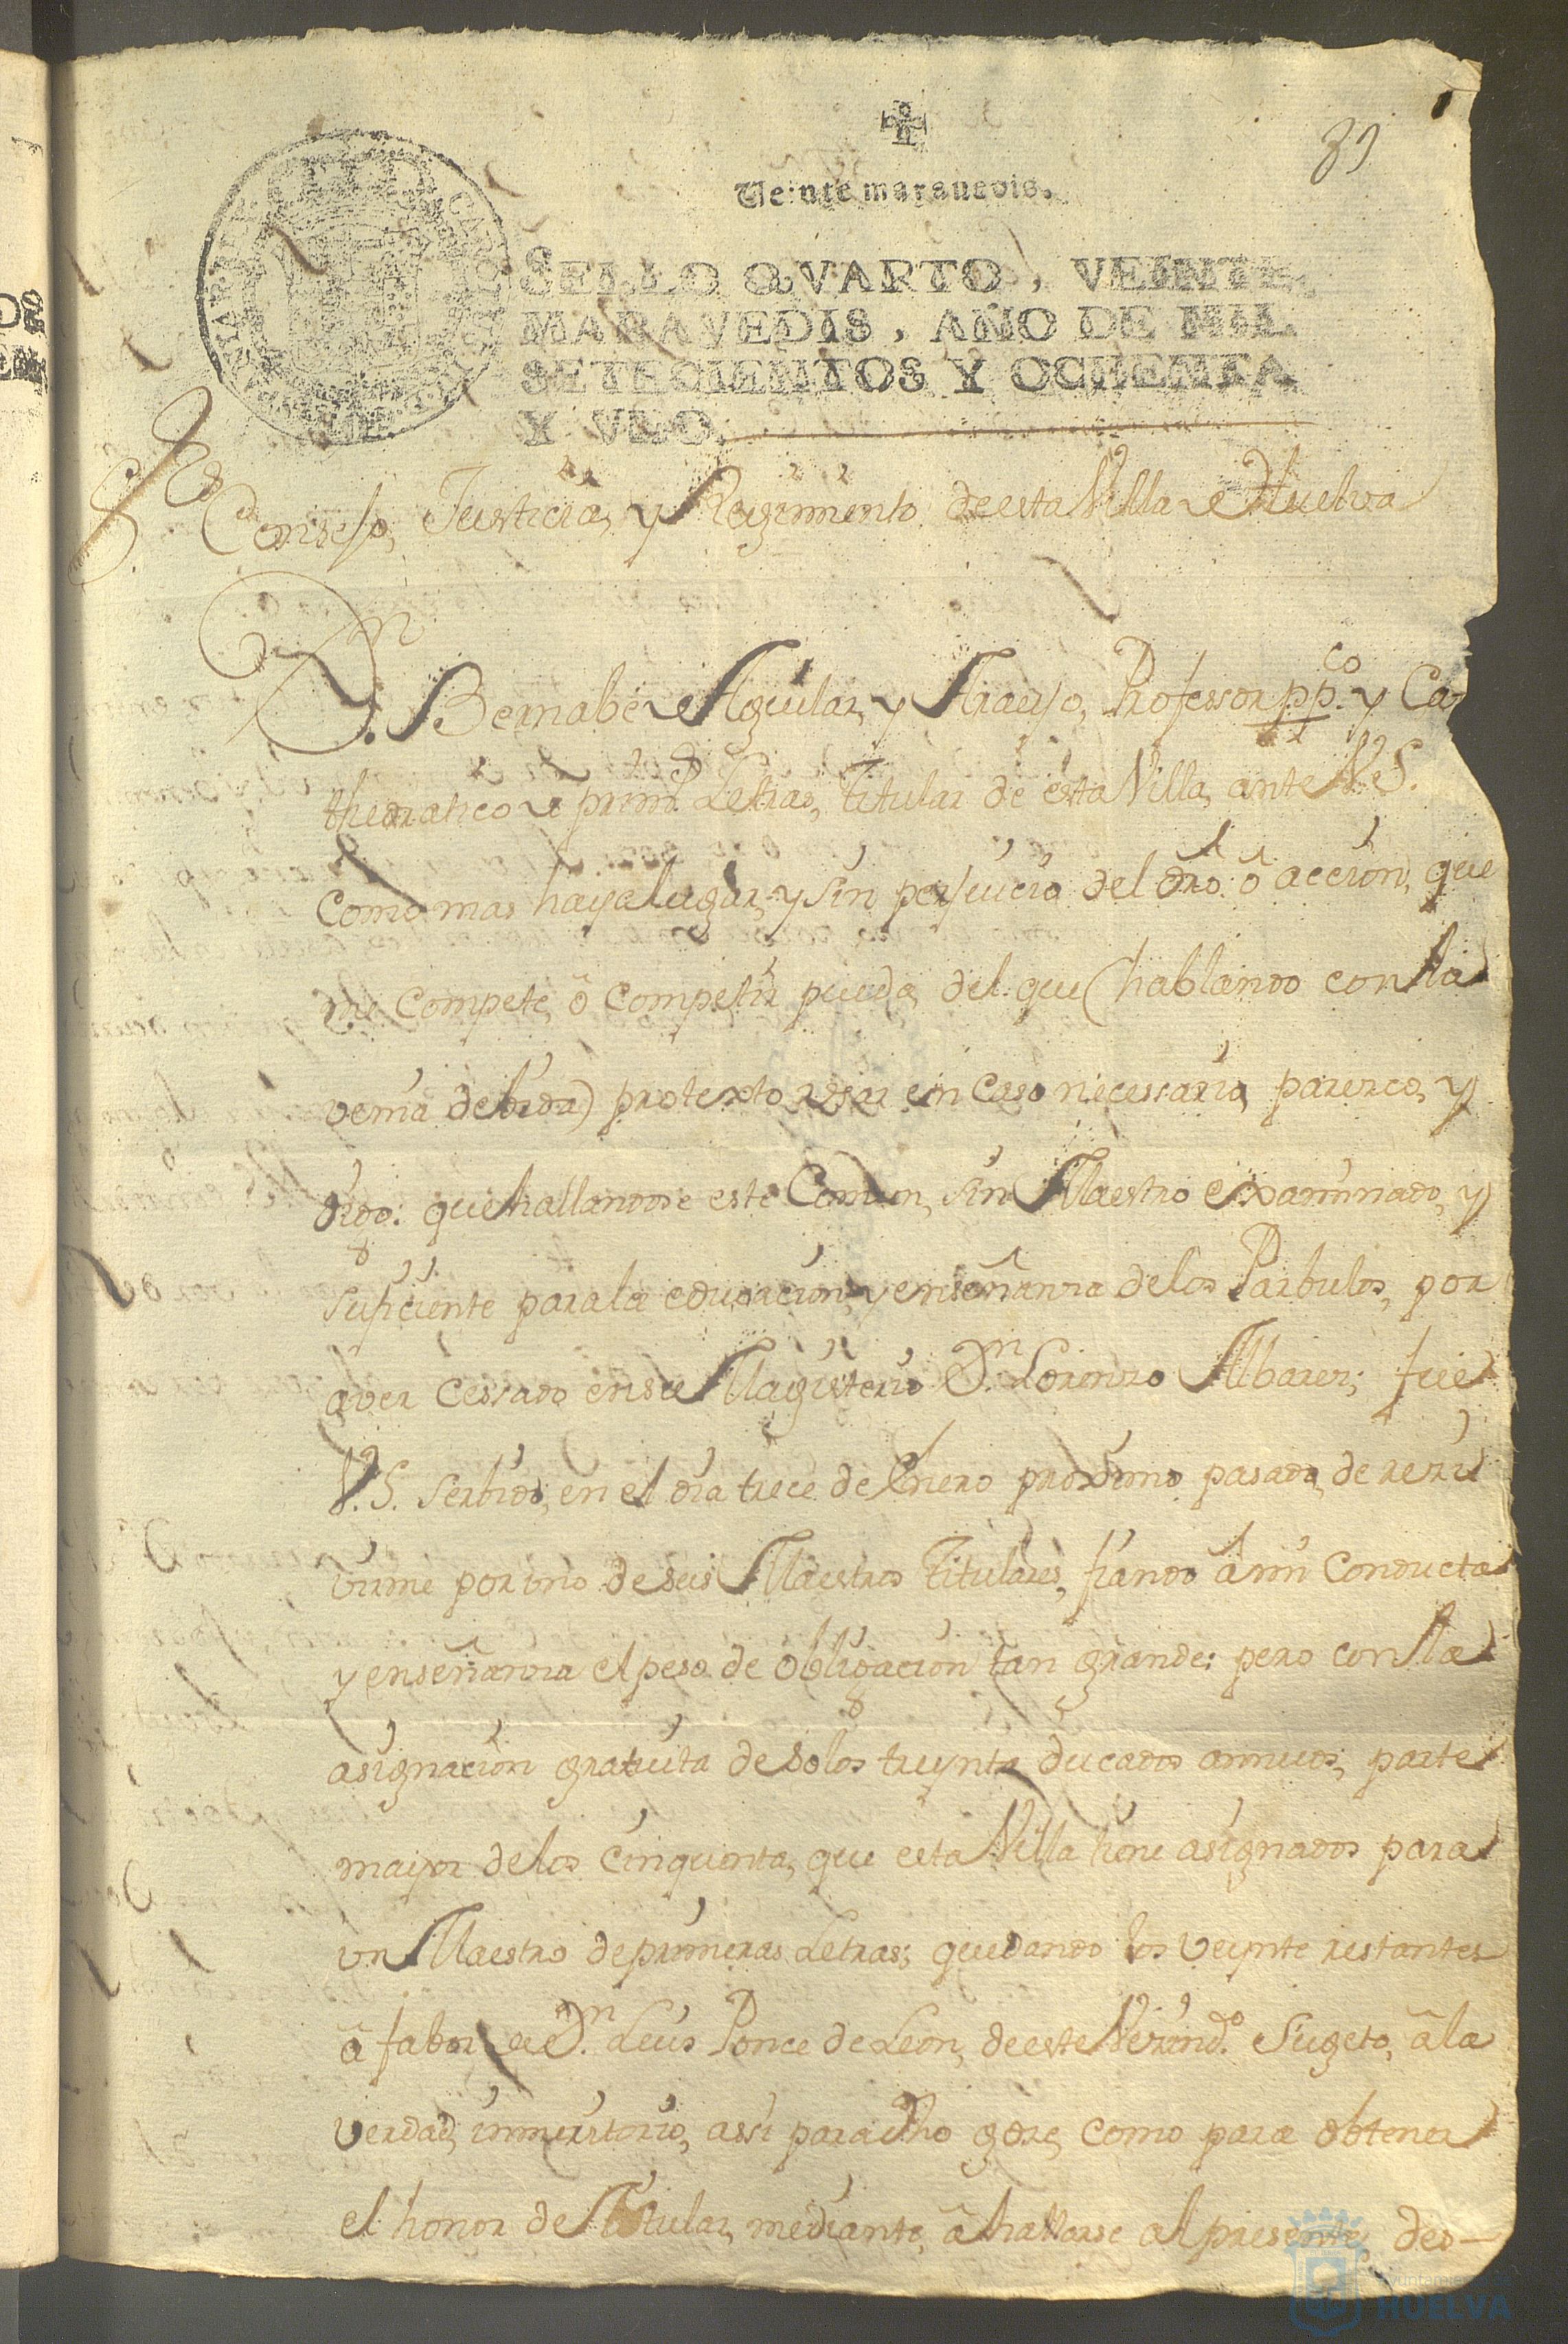 39
Veinte maravedis.
SELLO QVARTO, VEINTE
MARAVEDIS, AÑO DE MIL
SETECIENTOS Y OCHENTA
Y VNO.
Consejo, Justicia, y Regimiento de esta Villa de Huelva
Dn. Bernabe de Aguilar, y Araujo, Professor pp.co y Ca-
thedratico de prim.s Letras, Titular de esta Villa, ante V.S.
como mas haya lugar, y sin perjuicio del dro. ô acción, que
me compete, ô competir pueda, del que (hablando con la
venia debida) protexto usar en caso necessario, parezco, y
digo: que hallandose este Comun, sin Maestro examinado, y
suficiente para la educacion, y enseñanza de los Parbulos, por
aver cessado en su Magisterio Dn. Lorenzo Albarez; fue
V.S. serbido, en el dia trece de Enero proximo pasado, de reci
virme por uno de seis Maestros Titulares, fiando â mi conducta
y enseñanza el peso de obligacion tan grande: pero con la
asignacion gratuita de solos treynta ducados annuos, parte
mayor de los cinquenta, que esta Villa tiene asignados para
un Maestro de primeras Letras; quedando los veynte restantes
â fabor de Dn. Luis Ponce de Leon, de este Vecind.o Sugeto, â la
verdad, inmeritorio, assi para dho goze, como para obtener
el honor de Titular, mediante, â hallarse al presente, des-
Ayuntamiento de
HUELVA